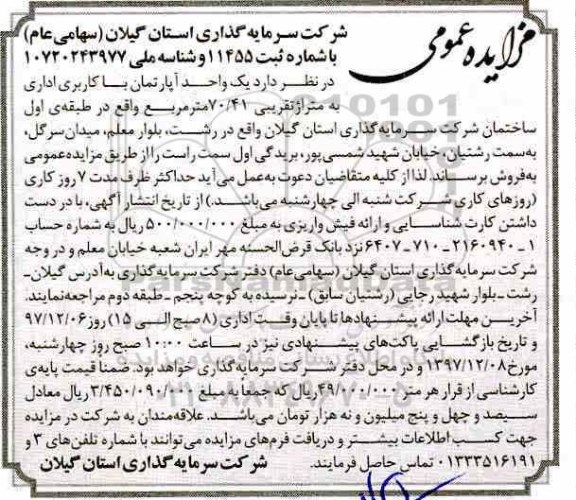 مزایده عمومی
شرکت سرمایه گذاری استان گیلان (سهامی عام)
با شماره ثبت ۱۱۴۵۵ و شناسه ملی ۱۰۷۲۰۲۴۳۹۷۷
در نظر دارد یک واحد آپارتمان با کاربری اداری
به متراژ تقریبی ۷۰/۴۱ مترمربع واقع در طبقه‌ی اول
ساختمان شرکت سرمایه گذاری استان گیلان واقع در رشت، بلوار معلم، میدان سرگل،
به‌سمت رشتیان، خیابان شهید شمسی‌پور، بریدگی اول سمت راست را از طریق مزایده عمومی
به‌فروش برساند. لذا از کلیه متقاضیان دعوت به‌عمل می‌آید حداکثر ظرف مدت ۷ روز کاری
(روزهای کاری شرکت شنبه الی چهارشنبه می‌باشد.) از تاریخ انتشار آگهی، با در دست
داشتن کارت شناسایی و ارائه فیش واریزی به مبلغ ۵۰۰/۰۰۰/۰۰۰ ریال به شماره حساب
۱ـ ۲۱۶۰۹۴۰ـ ۷۱۰ـ ۶۴۰۷ نزد بانک قرض‌الحسنه مهر ایران شعبه خیابان معلم و در وجه
شرکت سرمایه گذاری استان گیلان (سهامی عام) دفتر شرکت سرمایه گذاری به آدرس گیلان ـ
رشت ـ بلوار شهید رجایی (رشتیان سابق) ـ نرسیده به کوچه پنجم ـ طبقه دوم مراجعه نمایند.
آخرین مهلت ارائه پیشنهادها تا پایان وقت اداری (۸ صبح الی ۱۵) روز ۹۷/۱۲/۰۶
و تاریخ بازگشایی پاکت‌های پیشنهادی نیز در ساعت ۱۰:۰۰ صبح روز چهارشنبه،
مورخ ۱۳۹۷/۱۲/۰۸ و در محل دفتر شرکت سرمایه گذاری خواهد بود. ضمناً قیمت پایه‌ی
کارشناسی از قرار هر متر ۴۹/۰۰۰/۰۰۰ ریال که جمعاً به مبلغ ۳/۴۵۰/۰۹۰/۰۰۰ ریال معادل
سیصد و چهل و پنج میلیون و نه هزار تومان می‌باشد. علاقه‌مندان به شرکت در مزایده
جهت کسب اطلاعات بیشتر و دریافت فرم‌های مزایده می‌توانند با شماره تلفن‌های ۳ و
۰۱۳۳۳۵۱۶۱۹۱ تماس حاصل فرمایند. شرکت سرمایه گذاری استان گیلان